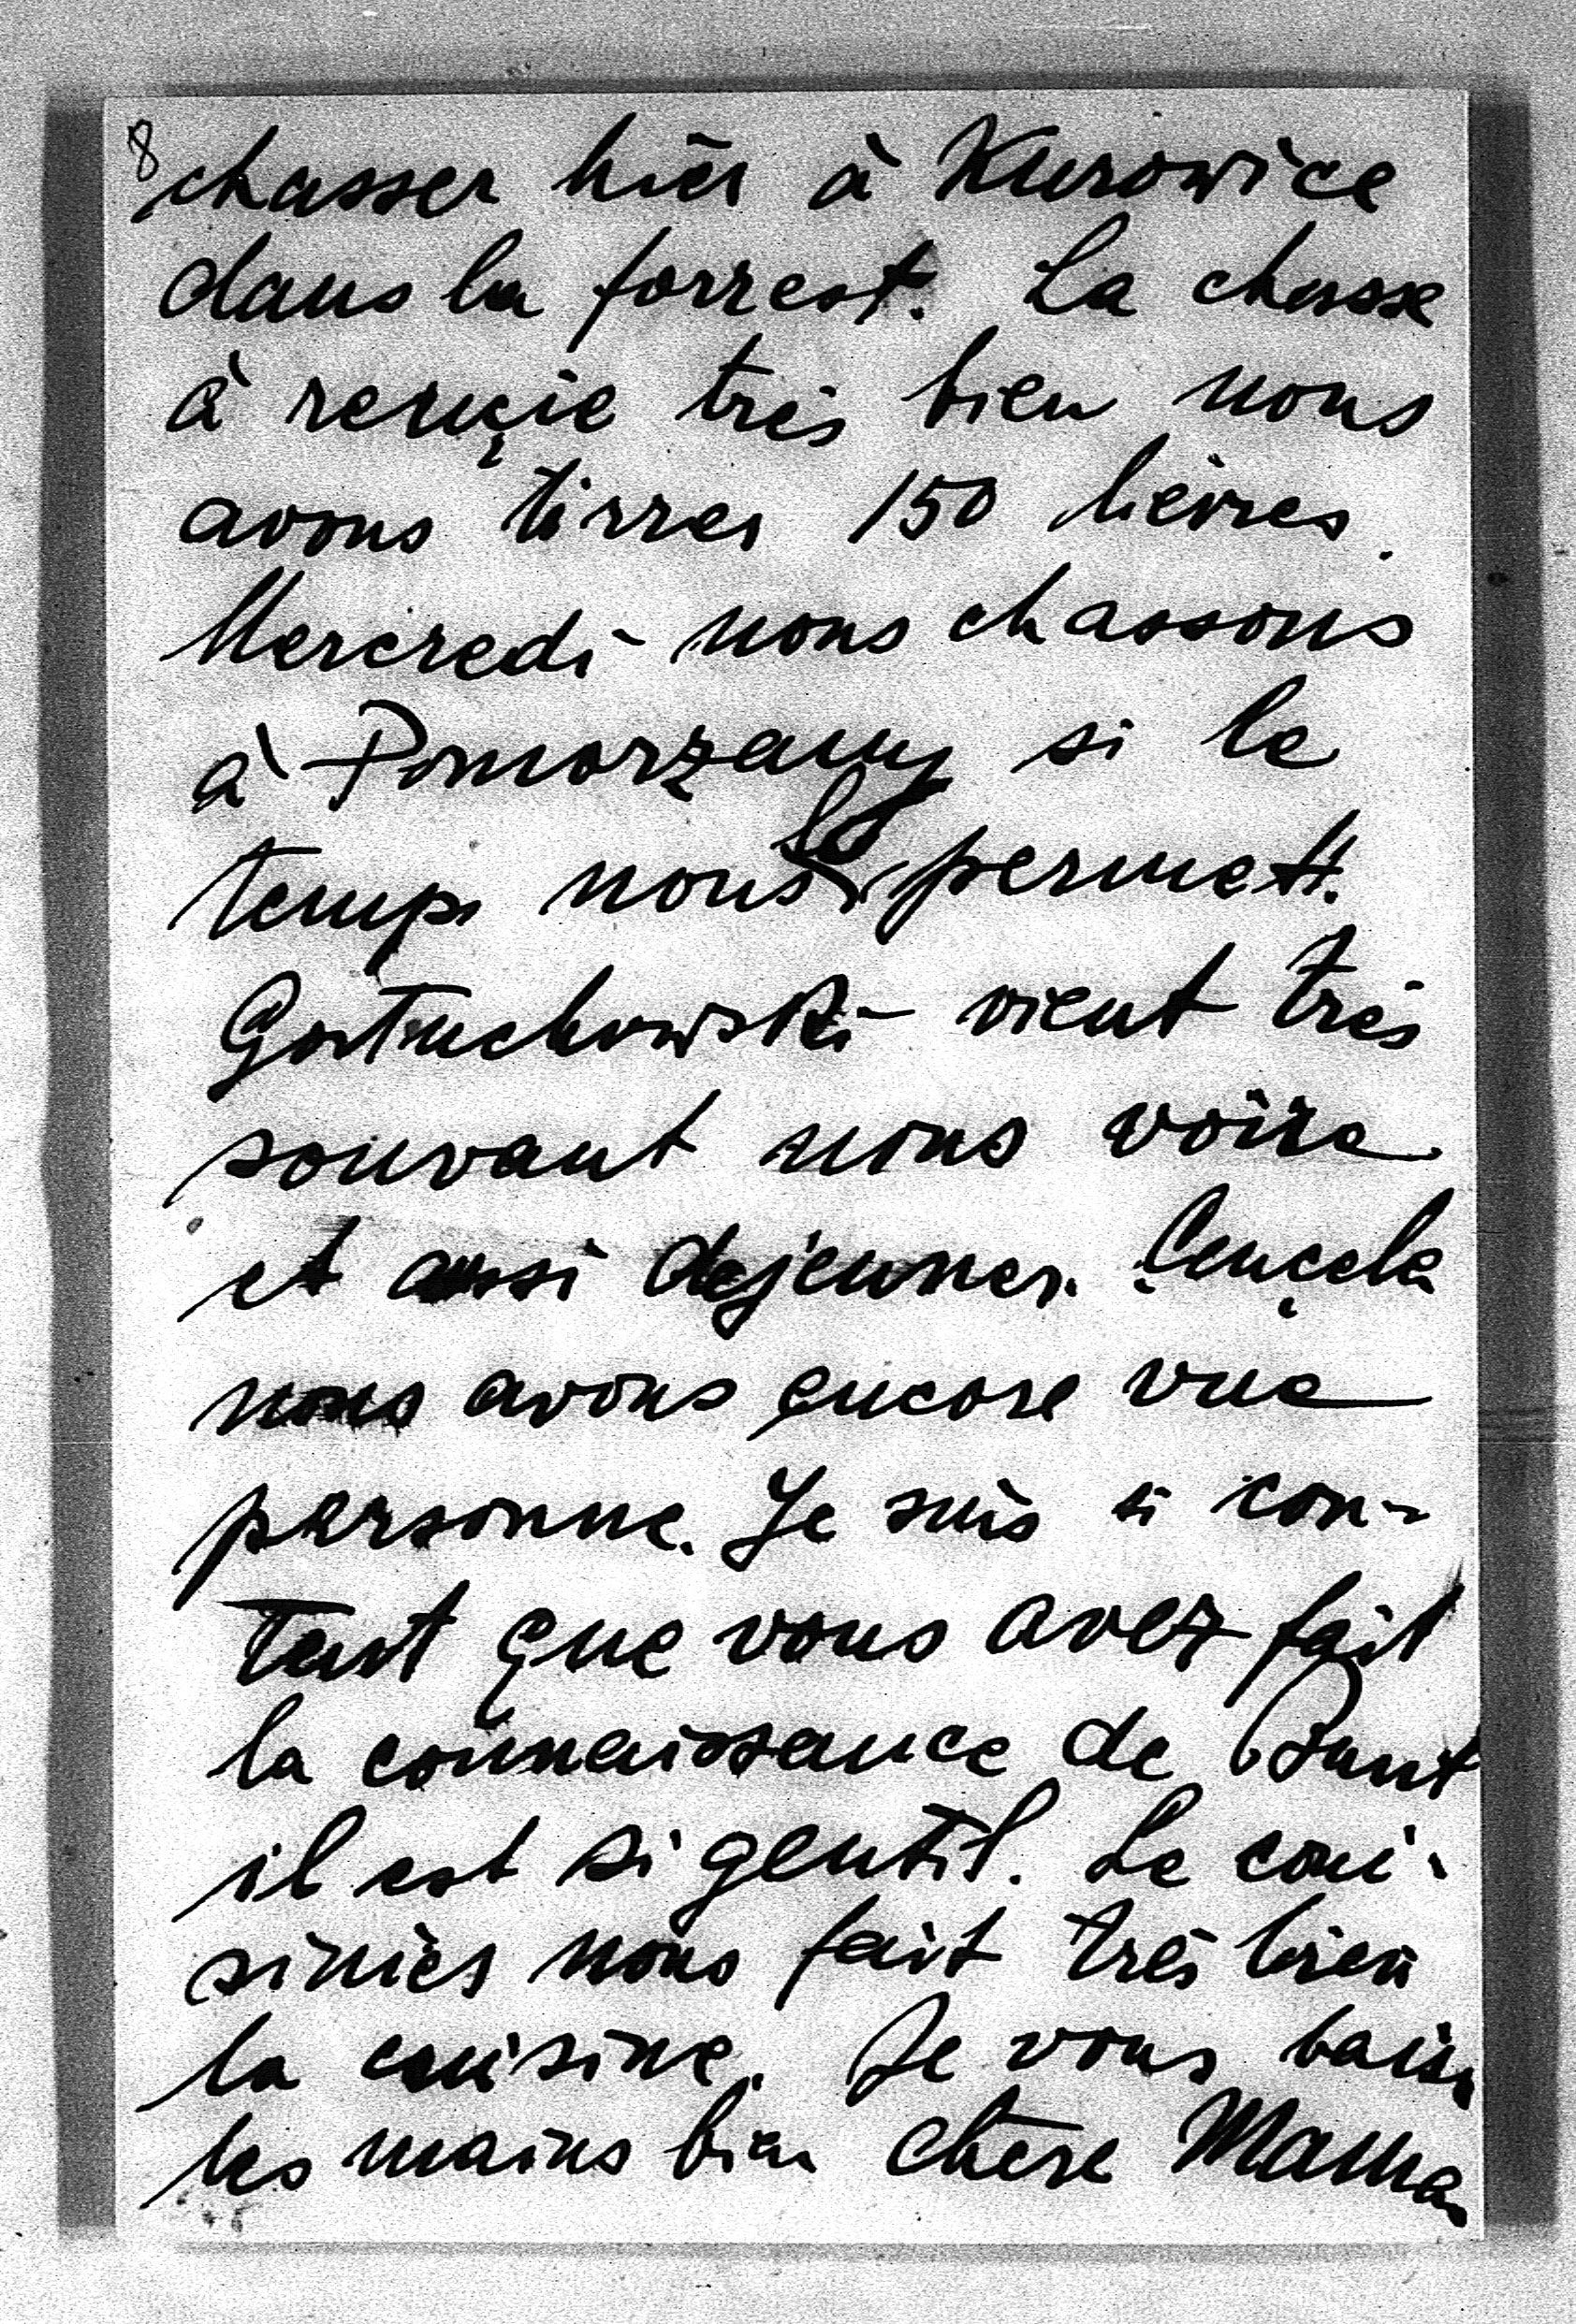 8
chasser hièr à Kurowice
dans la forrest. La chasse
à rençie très bien nous
avons tirrer 150 lièvres.
Mercredi nous chassons
à Pomorzany si le
temps nous le permett.
Gortuchowski vient très
souvant nous voire
et aussi dejeunner.
nous avons encore vue
personne. Je suis si con-
tent que vous avez fait
la connaissance de
il est si gentil. Le coui-
sinièr nous fait très bien
la cuisine. Je vous baise
les mains bien chère Maman